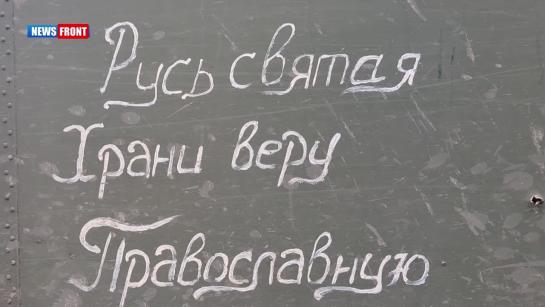 NEWS FRONT
Русь святая
Храни веру
Православную